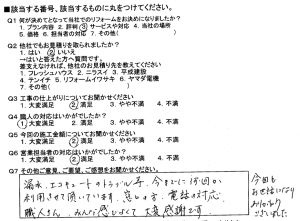 ■該当する番号、該当するものに丸をつけてください。
Q1 何が決めてとなって当社でのリフォームをお決めになりましたか?
1. プラン内容 2. 評判 ③ サービスや対応 4. 当社の場所
5. 価格 6. 担当者の対応 7. その他( )
Q2 他社でもお見積りを取られましたか?
1. はい ② いいえ
→はいと答えた方へ質問です。
差支えなければ、他社のお見積り先を教えてください
1. フレッシュハウス 2. ニラスイ 3. 平成建設
4. テンイチ 5. リフォームワサキ 6. ヤマダ電機
7. その他( )
Q3 工事の仕上がりについてお聞かせください
1. 大変満足 ② 満足 3. やや不満 4. 不満
Q4 職人の対応はいかがでしたか?
① 大変満足 2. 満足 3. やや不満 4. 不満
Q5 今回の施工金額についてお聞かせください
1. 大変満足 ② 満足 3. やや不満 4. 不満
Q6 営業担当者の対応はいかがでしたか?
1. 大変満足 ② 満足 3. やや不満 4. 不満
Q7 その他ご意見、ご要望、ご感想をお聞かせください。
漏水、エコキュートのトラブル等、今までに何回か
利用させて頂いています。急な時、電話の対応
職人さん、みんな感じよくて大変感謝です。
今回も
お世話になり
ありがとう
ございました